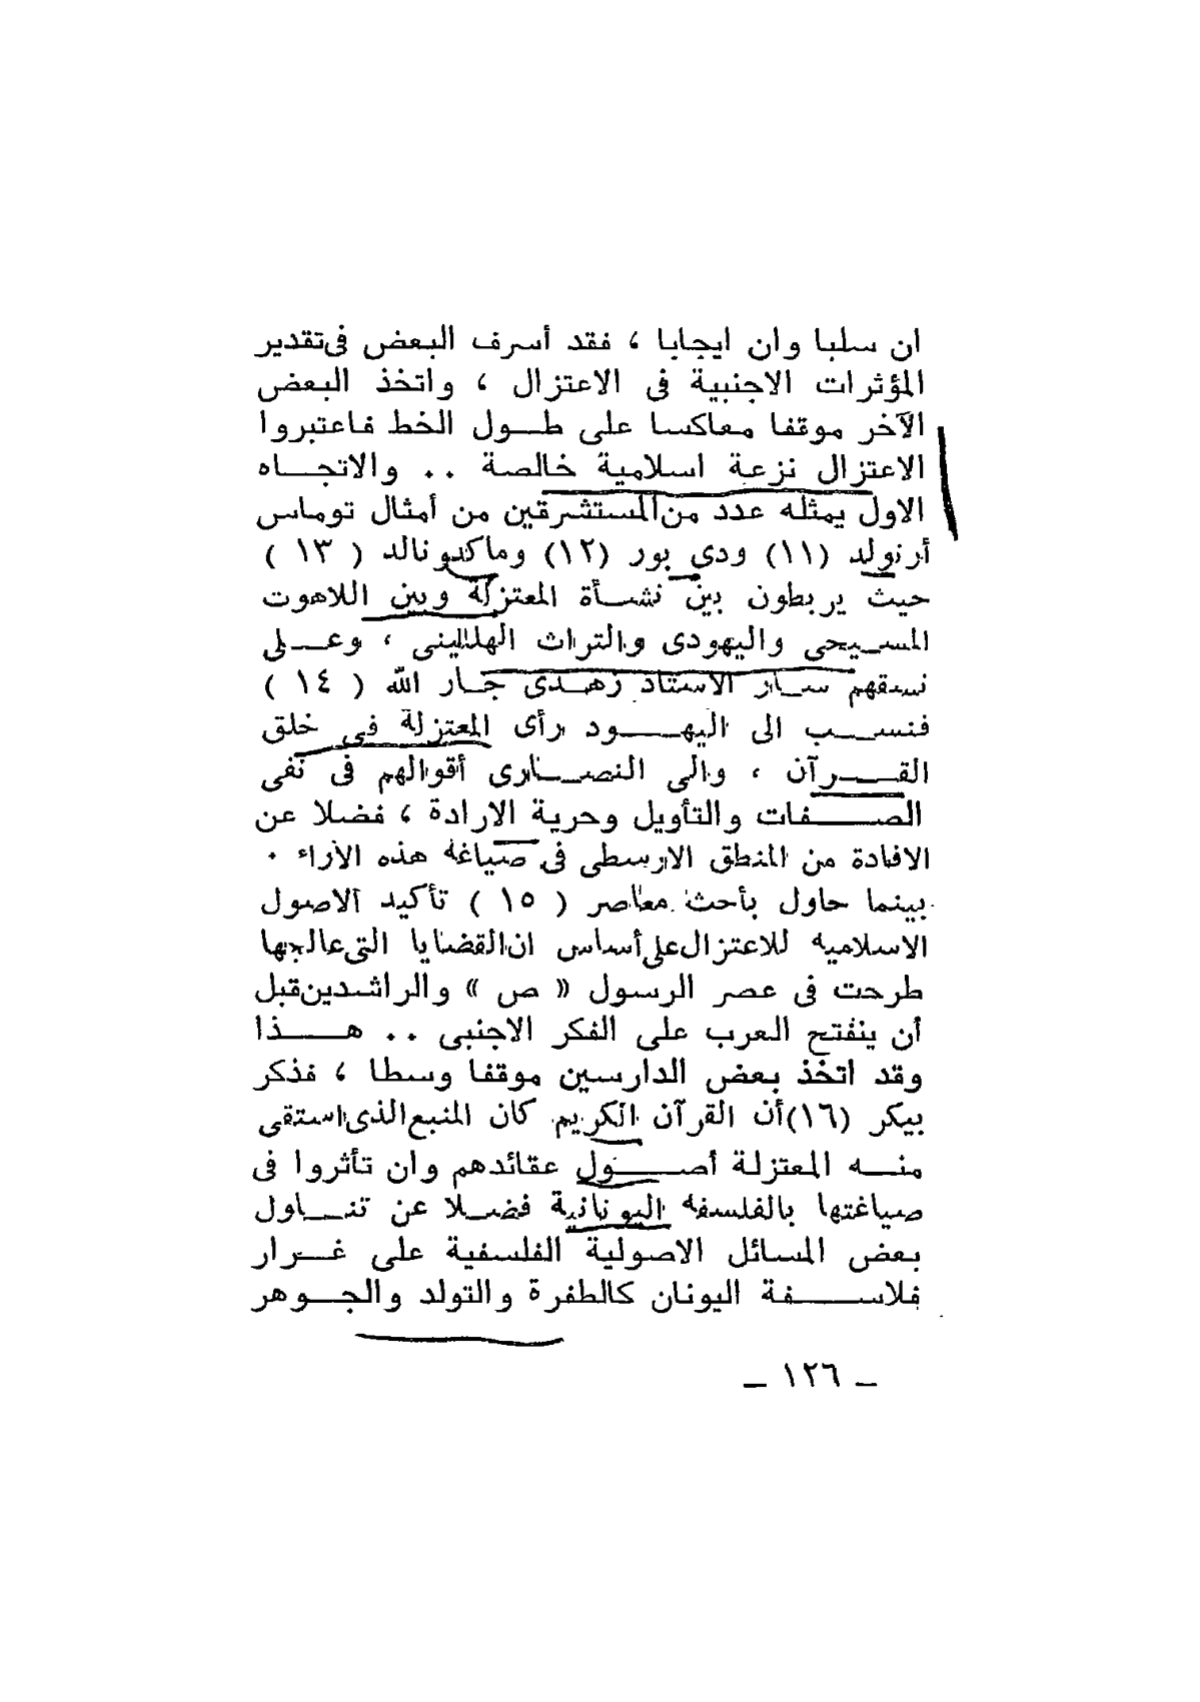 ان سلبا وان ايجابا ، فقد أسرف البعض فى تقدير
المؤثرات الاجنبية فى الاعتزال ، واتخذ البعض
الآخر موقفا معاكسا على طول الخط فاعتبروا
الاعتزال نزعة اسلامية خالصة .. والاتجاه
الاول يمثله عدد من المستشرقين من أمثال توماس
أرنولد (١١) ودى بور (١٢) وماكدونالد ( ١٣ )
حيث يربطون بين نشأة المعتزلة وبين اللاهوت
المسيحى واليهودى والتراث الهللينى ، وعلى
نسقهم سار الاستاذ زهدى جار الله ( ١٤ )
فنسب الى اليهود رأى المعتزلة فى خلق
القرآن ، والى النصارى أقوالهم فى نفى
الصفات والتأويل وحرية الارادة ، فضلا عن
الافادة من المنطق الارسطى فى صياغة هذه الآراء .
بينما حاول باحث معاصر ( ١٥ ) تأكيد الاصول
الاسلامية للاعتزال على أساس ان القضايا التى عالجها
طرحت فى عصر الرسول « ص » والراشدين قبل
أن ينفتح العرب على الفكر الاجنبى .. هذا
وقد اتخذ بعض الدارسين موقفا وسطا ، فذكر
بيكر (١٦) أن القرآن الكريم كان المنبع الذى استقى
منه المعتزلة أصول عقائدهم وان تأثروا فى
صياغتها بالفلسفه اليونانية فضلا عن تناول
بعض المسائل الاصولية الفلسفية على غرار
فلاسفة اليونان كالطفرة والتولد والجوهر
ـ ١٢٦ ـ